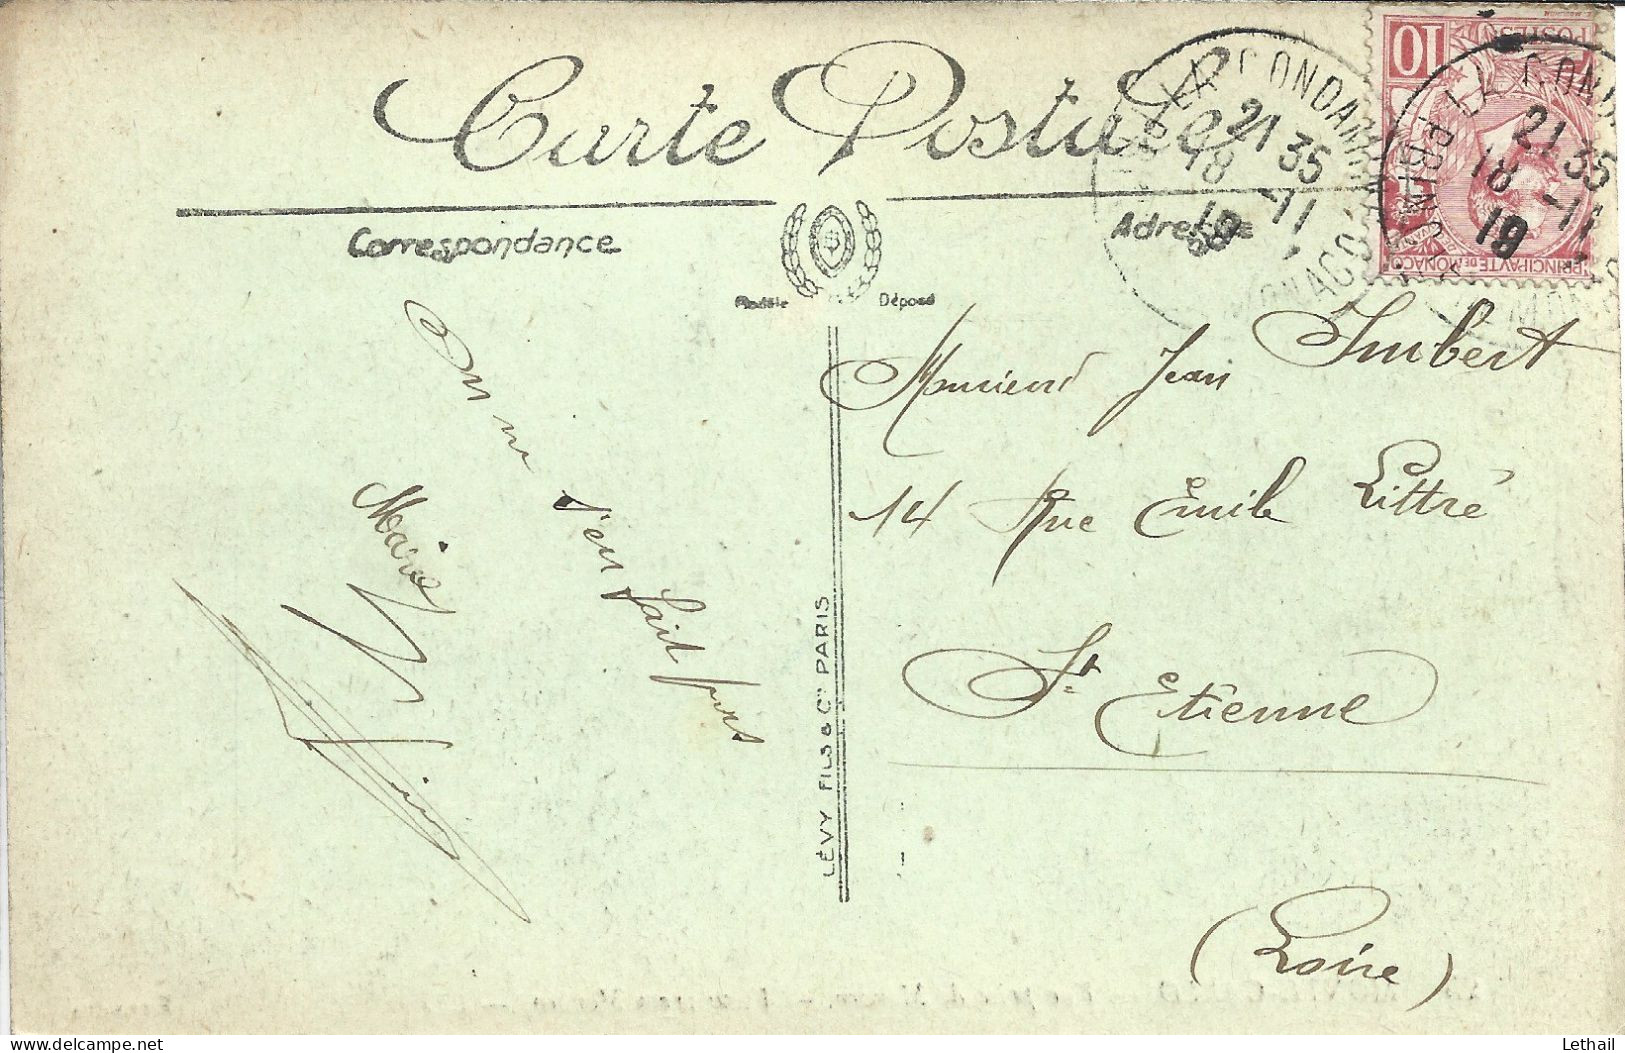 Carte Postale
Correspondance
Adresse
Modèle
Déposé
LA CONDAMINE
21 35
18 -11
19
MONACO
10
POSTES
PRINCIPAUTÉ DE MONACO
LA CON
21 35
18 -11
19
On ne s'en fait pas
Marie
Monsieur Jean Imbert
14 Rue Emile Littré
St Etienne
(Loire)
LÉVY FILS & Cie PARIS
Lethail